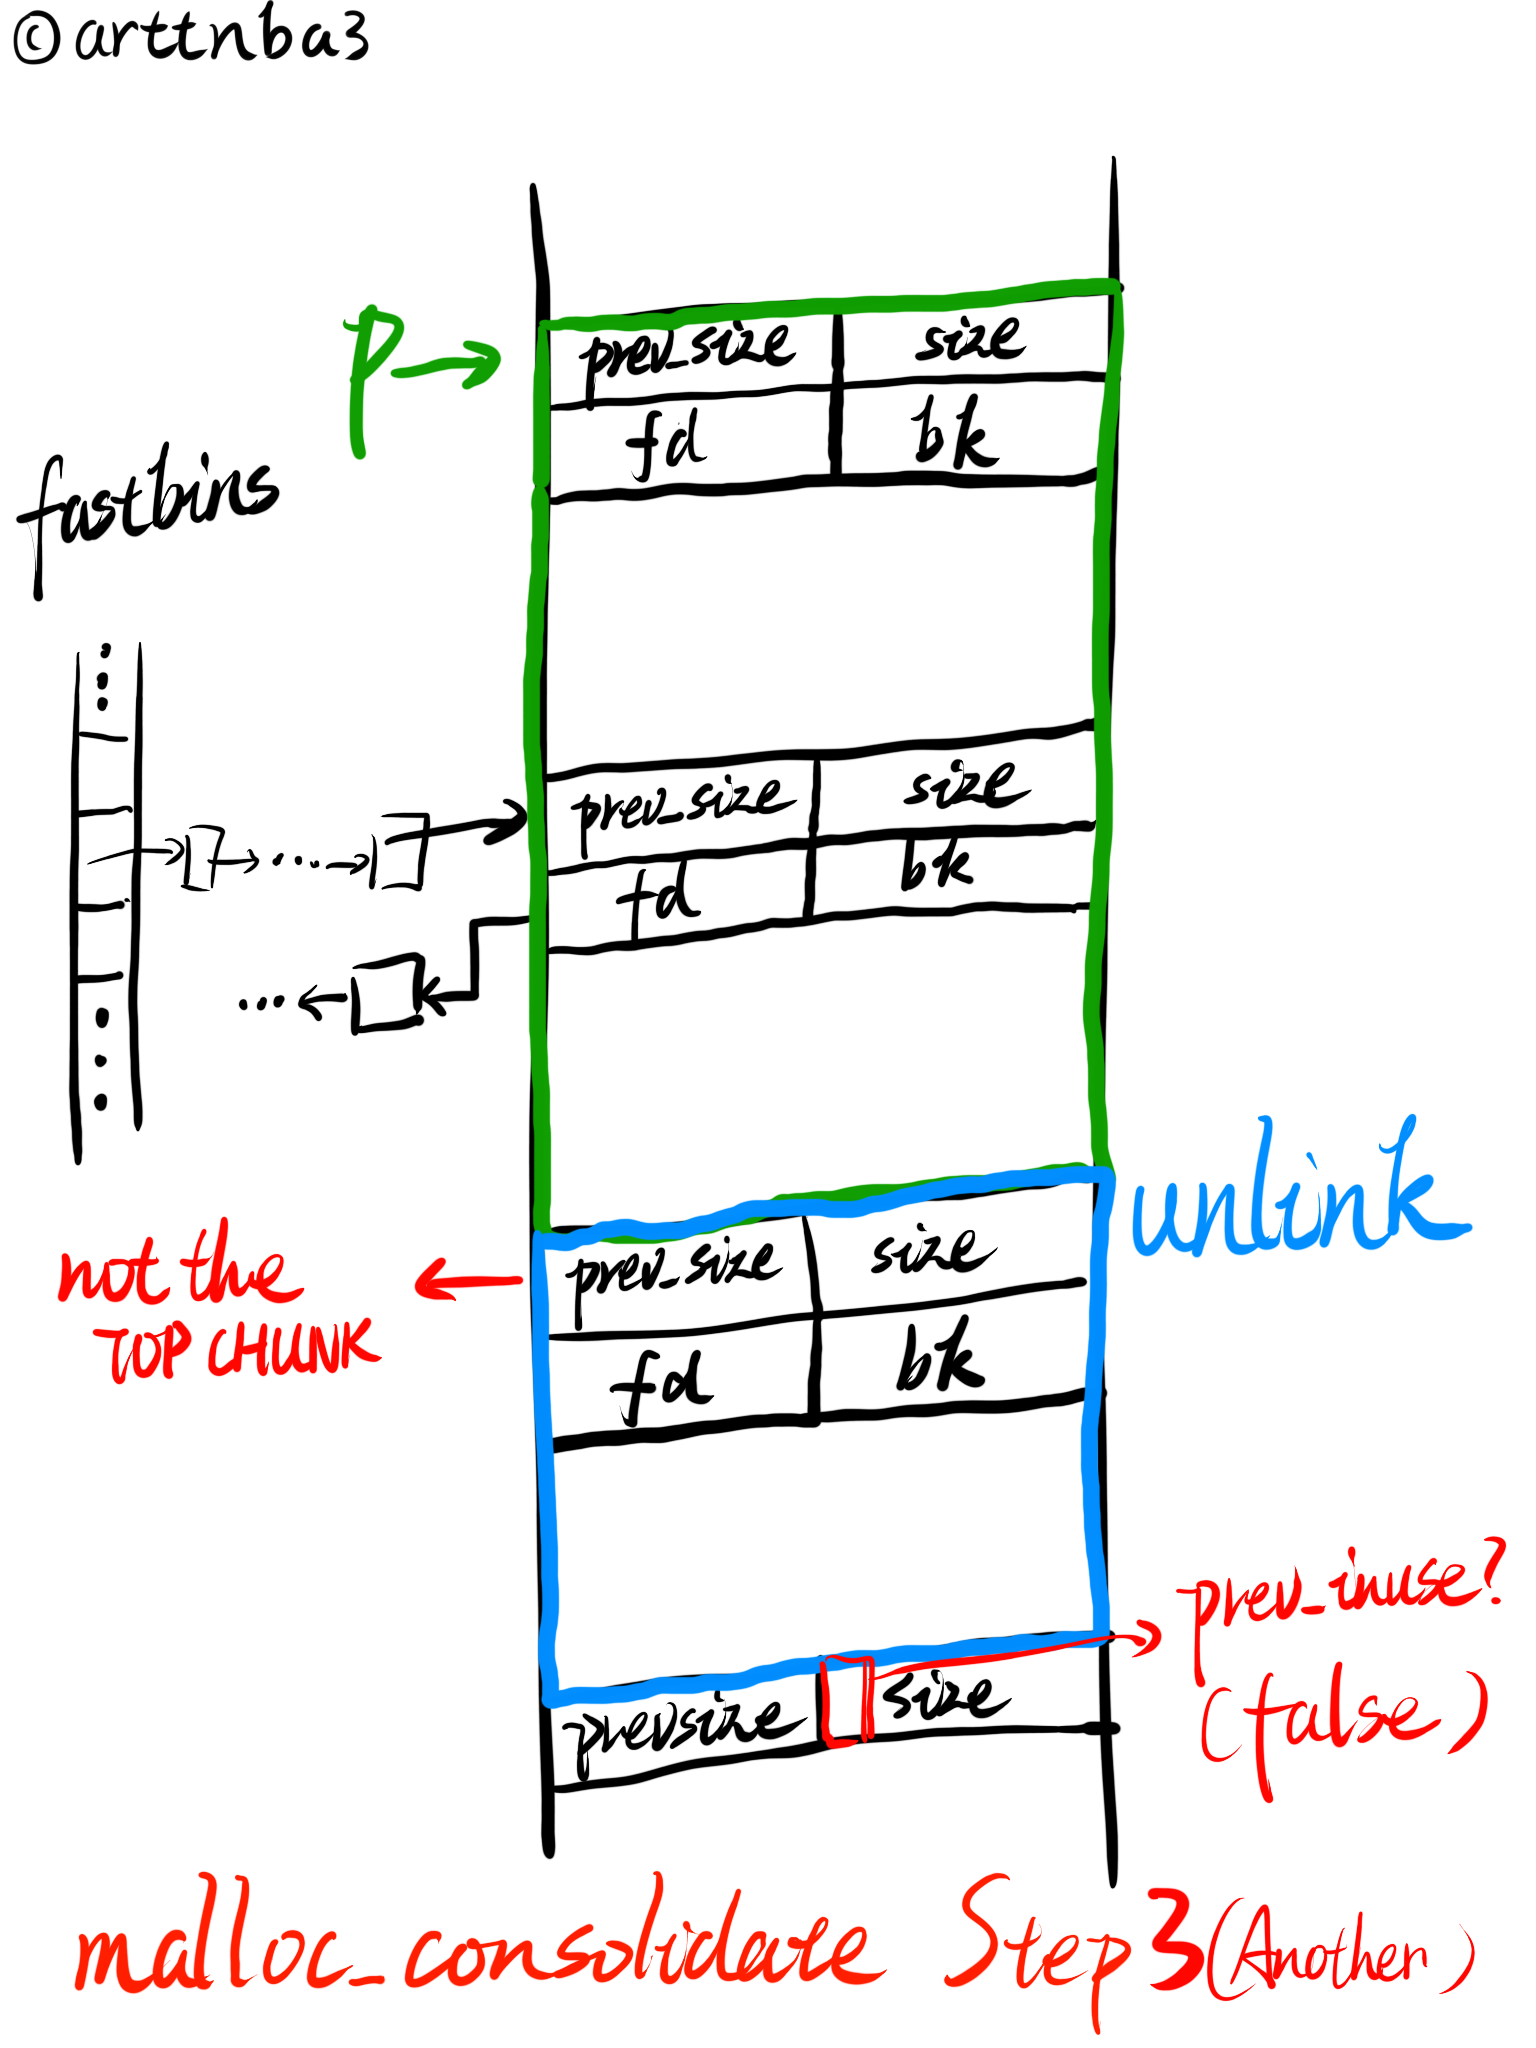 ©arttnba3
P
prev_size size
fd bk
fastbins
prev_size size
fd bk
unlink
not the
TOP CHUNK
prev_size size
fd bk
prev_inuse?
(false)
prevsize size
malloc_consolidate Step 3 (Another)